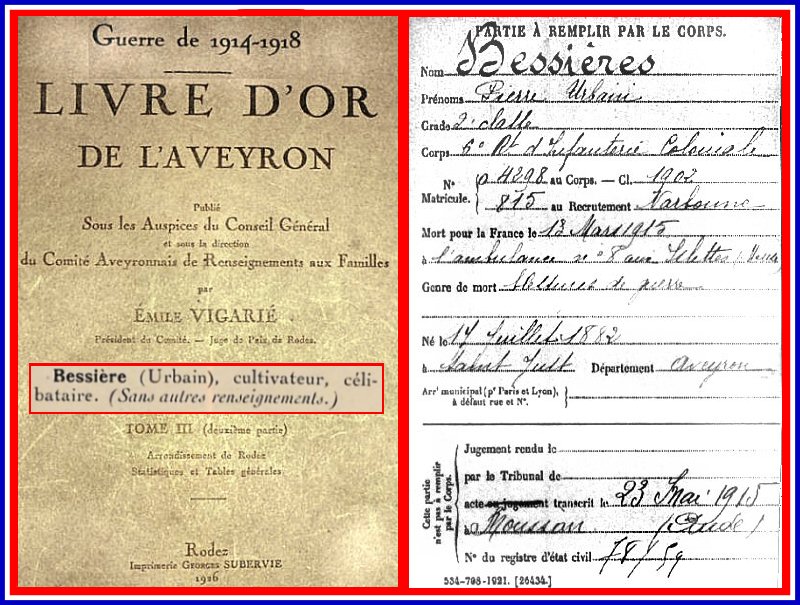 Guerre de 1914-1918
LIVRE D'OR
DE L'AVEYRON
Publié
Sous les Auspices du Conseil Général
et sous la direction
du Comité Aveyronnais de Renseignements aux Familles
par
ÉMILE VIGARIÉ
Président du Comité. — Juge de Paix de Rodez.
Bessière (Urbain), cultivateur, céli-
bataire. (Sans autres renseignements.)
TOME III (deuxième partie)
Arrondissement de Rodez
Statistiques et Tables générales
Rodez
Imprimerie GEORGES SUBERVIE
1926
PARTIE À REMPLIR PAR LE CORPS.
Nom Bessières
Prénoms Pierre Urbain
Grade 2e classe
Corps 6e Rt d'Infanterie Coloniale
N° 4298 au Corps. — Cl. 1902
Matricule. 815 au Recrutement Narbonne
Mort pour la France le 13 Mars 1915
à l'ambulance n° 8 aux Islettes (Meuse)
Genre de mort Blessures de guerre
Né le 17 Juillet 1882
à Saint Just Département Aveyron
Arrt municipal (pr Paris et Lyon),
à défaut rue et N°.
Cette partie
n'est pas à remplir
par le Corps.
Jugement rendu le
par le Tribunal de
acte ou jugement transcrit le 23 Mai 1915
à Moussan (Aude)
N° du registre d'état civil 78/59
534-708-1921. [26434.]